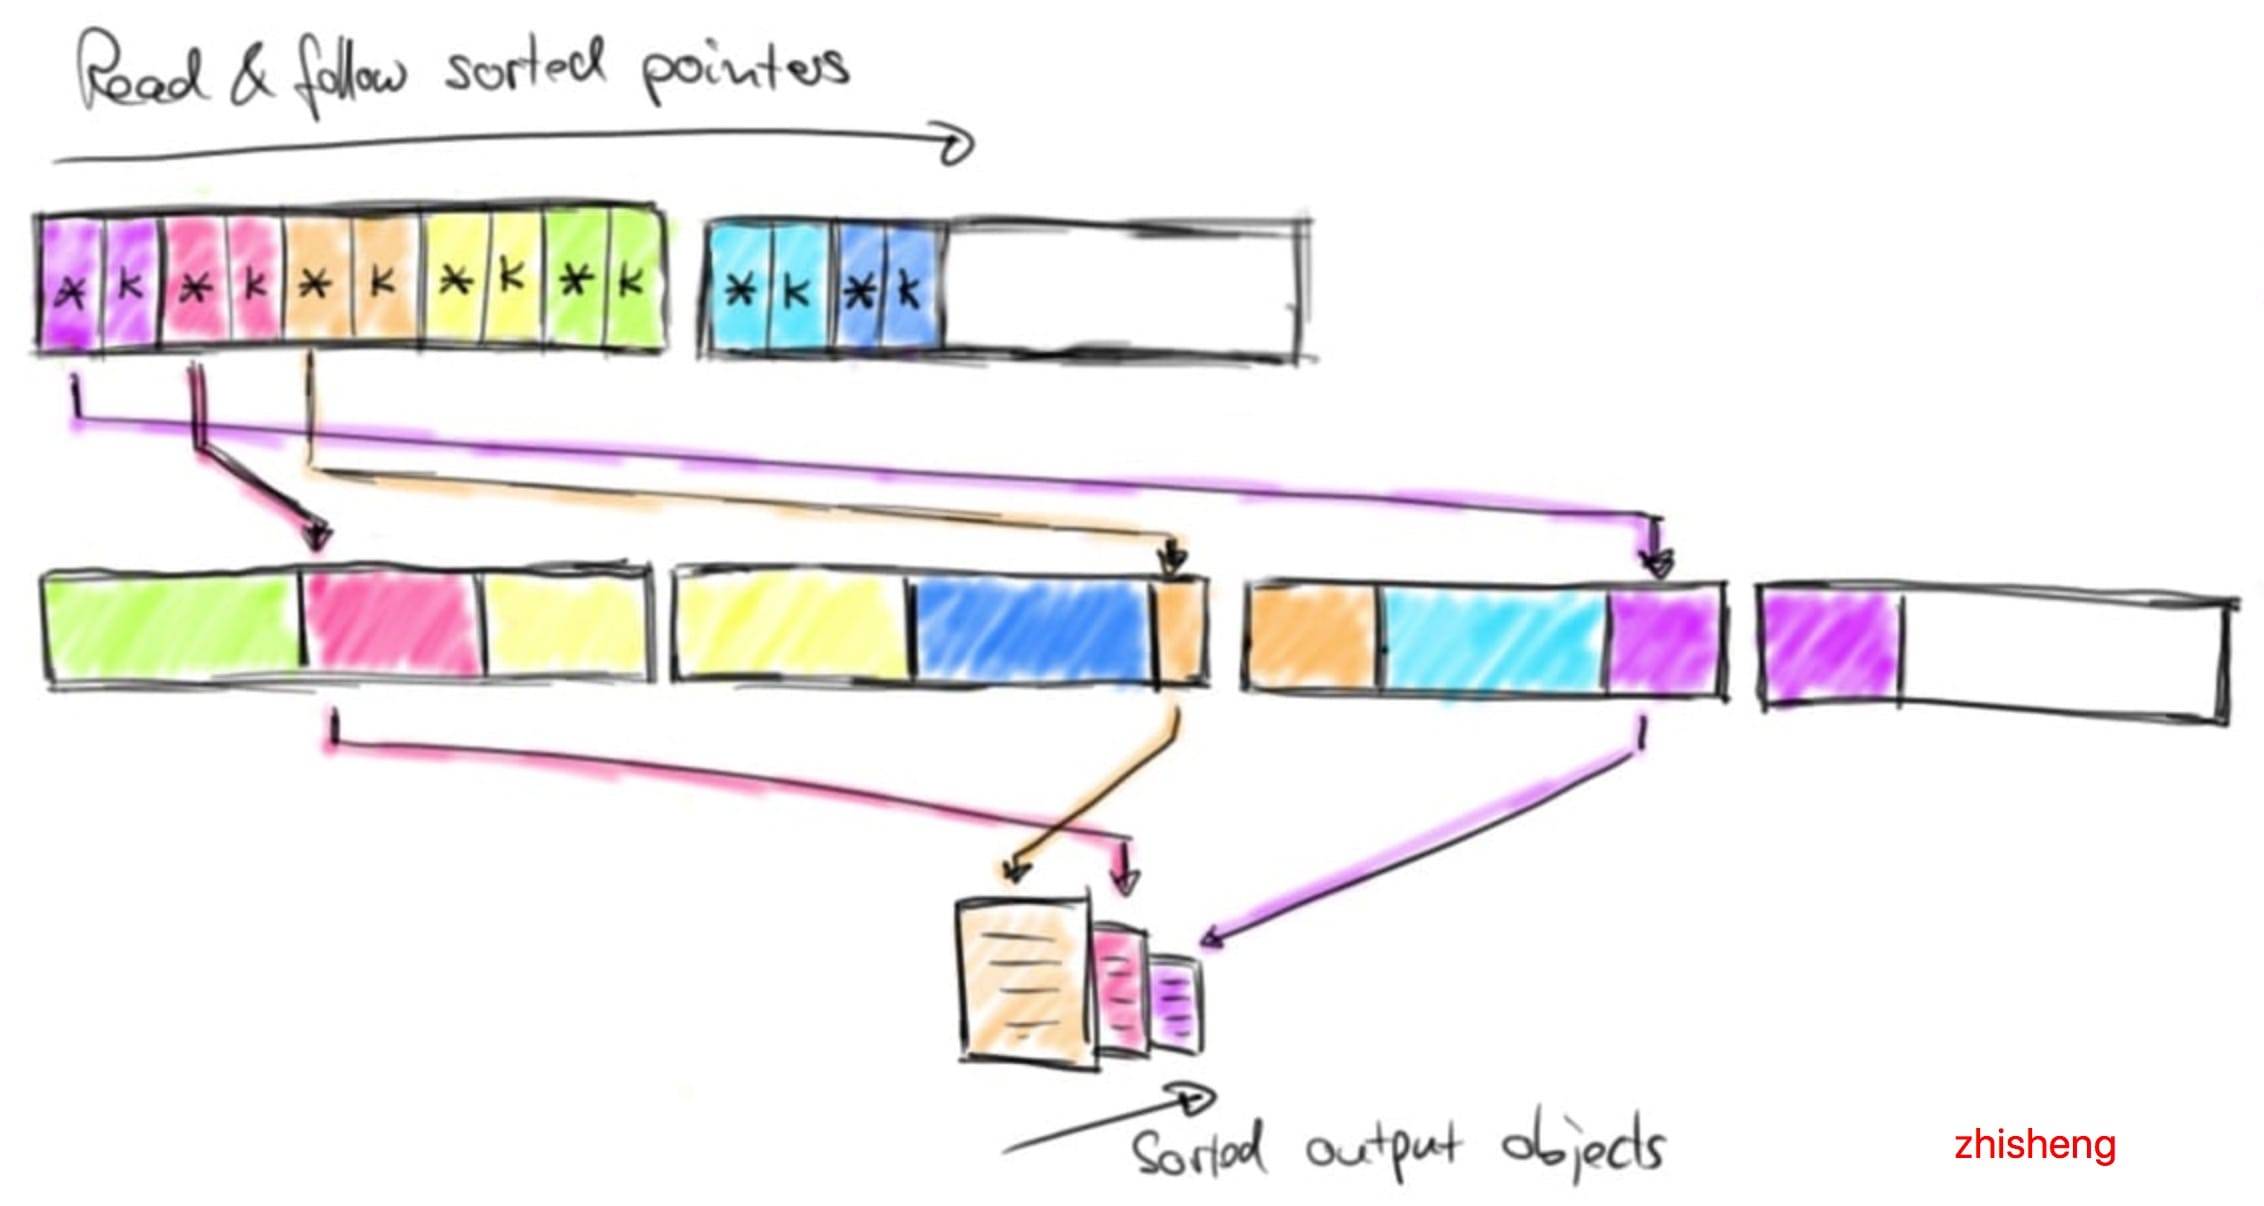 Read & follow sorted pointers
* k * k * k * k * k * k * k
Sorted output objects
zhisheng